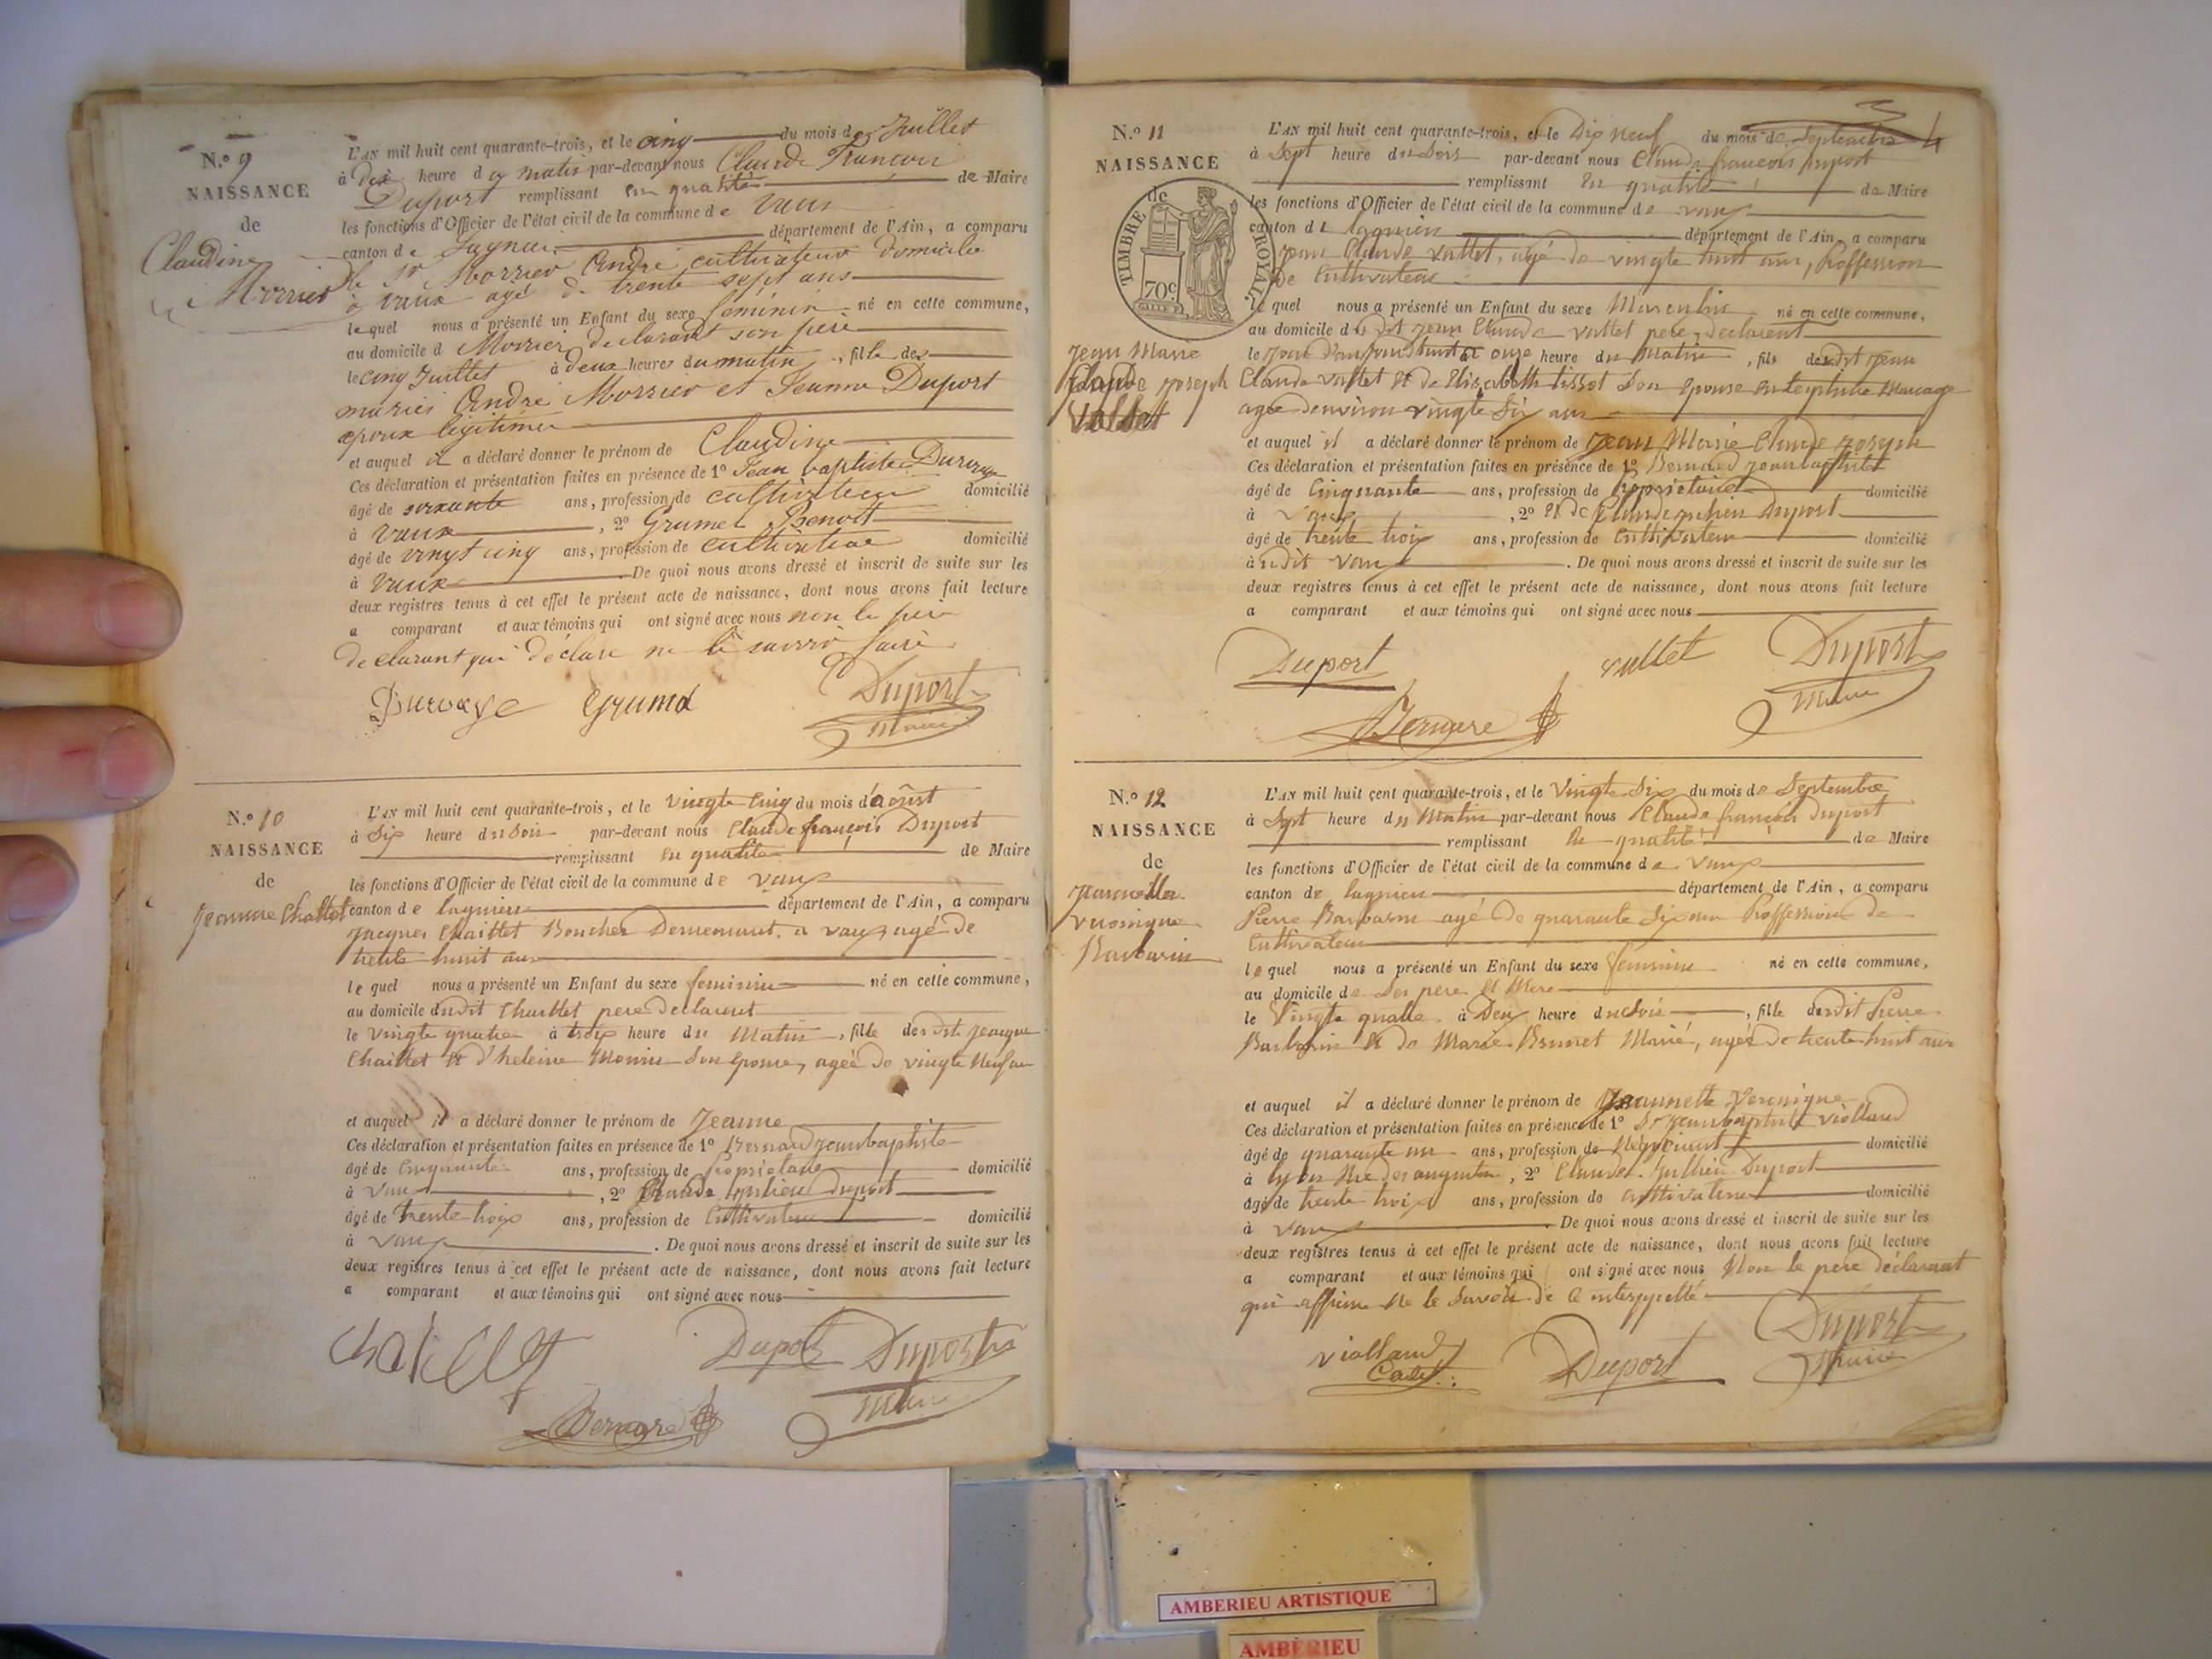 N.º 9
NAISSANCE
de
Claudine
Morrier
L'AN mil huit cent quarante-trois, et le cinq du mois de Juillet
à dix heure du matin par-devant nous Claude Francois
Duport remplissant en qualité de Maire
les fonctions d'Officier de l'état civil de la commune de Vaux
canton de Lagnieu département de l'Ain, a comparu
le Sr Morrier André cultivateur domicilié
à vaux agé de trente sept ans
lequel nous a présenté un Enfant du sexe féminin né en cette commune,
au domicile d Morrier déclarant son père
le cinq Juillet à deux heures du matin, fille des
mariés André Morrier et Jeanne Duport
epoux légitimes
et auquel il a déclaré donner le prénom de Claudine
Ces déclaration et présentation faites en présence de 1º Jean baptiste
âgé de soixante ans, profession de cultivateur domicilié
à vaux, 2º Grumet Benoit
âgé de vingt cinq ans, profession de cultivateur domicilié
à vaux De quoi nous avons dressé et inscrit de suite sur les
deux registres tenus à cet effet le présent acte de naissance, dont nous avons fait lecture
a comparant et aux témoins qui ont signé avec nous non le père
declarant qui déclare ne le savoir faire
Grumet Duport
Maire
N.º 10
NAISSANCE
de
Jeanne Chaillet
L'AN mil huit cent quarante-trois, et le vingte cinq du mois d'aôust
à Six heure du Soir par-devant nous Claude françois Duport
remplissant en qualité de Maire
les fonctions d'Officier de l'état civil de la commune de vaux
canton de lagnieu département de l'Ain, a comparu
Jacques Chaillet Boucher Demeurant a vaux agé de
trente huit ans
lequel nous a présenté un Enfant du sexe feminin né en cette commune,
au domicile dudit Chaillet pere declarent
le vingte quatre à trois heure du Matin, fille dudit Jacque
Chaillet et d'heleine Monin Son Epouse, agée de vingte neuf an
et auquel il a déclaré donner le prénom de Jeanne
Ces déclaration et présentation faites en présence de 1º Bernard jeanbaptiste
âgé de Cinquante ans, profession de Propriétaire domicilié
à vaux, 2º Claude Jullien duport
âgé de trente trois ans, profession de Cultivateur domicilié
à vaux. De quoi nous avons dressé et inscrit de suite sur les
deux registres tenus à cet effet le présent acte de naissance, dont nous avons fait lecture
a comparant et aux témoins qui ont signé avec nous
chaillet Duport Duport
Maire
Bernard
N.º 11
NAISSANCE
de
TIMBRE ROYAL.
70c
Jean Marie
Claude Joseph
Vallet
L'AN mil huit cent quarante-trois, et le Dix neuf du mois de Septembre 4
à Sept heure du Soir par-devant nous Claude françois Duport
remplissant En qualité de Maire
les fonctions d'Officier de l'état civil de la commune de vaux
canton de lagnieu département de l'Ain, a comparu
Jean Claude Vallet, agé de vingte huit ans, Proffession
de Cultivateur
lequel nous a présenté un Enfant du sexe Masculin né en cette commune,
au domicile du dit Jean Claude vallet pere declarent
le Jour à onze heure du Matin, fils dudit Jean
Claude vallet et de Elizabeth tissot Son Epouse
agée denviron vingte Six ans
et auquel il a déclaré donner le prénom de Jean Marie Claude Joseph
Ces déclaration et présentation faites en présence de 1º Bernard Jeanbaptiste
âgé de Cinquante ans, profession de Propriétaire domicilié
à vaux, 2º et de Claude jullien Duport
âgé de trente trois ans, profession de Cultivateur domicilié
à udit vaux. De quoi nous avons dressé et inscrit de suite sur les
deux registres tenus à cet effet le présent acte de naissance, dont nous avons fait lecture
a comparant et aux témoins qui ont signé avec nous
Duport vallet Duport
Maire
Bernard
N.º 12
NAISSANCE
de
Jeannette
veronique
Barbarin
L'AN mil huit cent quarante-trois, et le Vingte Six du mois de Septembre
à Sept heure du Matin par-devant nous Claude françois Duport
remplissant En qualité de Maire
les fonctions d'Officier de l'état civil de la commune de vaux
canton de lagnieu département de l'Ain, a comparu
Pierre Barbarin agé de quarante Six ans Proffession de
Cultivateur
lequel nous a présenté un Enfant du sexe feminin né en cette commune,
au domicile de Ses pere et Mere
le Vingte quatre à Deux heure du Soir, fille dudit Pierre
Barbarin et de Marie Brunet Marié, agés de trente huit ans
et auquel il a déclaré donner le prénom de Jeannette Veronique
Ces déclaration et présentation faites en présence de 1º Sr Jeanbaptiste Violland
âgé de quarante un ans, profession de Négociant domicilié
à lyon Rue des augustin, 2º Claude Jullien Duport
âgé de trente trois ans, profession de cultivateur domicilié
à vaux. De quoi nous avons dressé et inscrit de suite sur les
deux registres tenus à cet effet le présent acte de naissance, dont nous avons fait lecture
a comparant et aux témoins qui ont signé avec nous Non le pere déclarant
qui affirme ne le Savoir de ce interppellé
violland
Cadet Duport Duport
Maire
AMBERIEU ARTISTIQUE
AMBÉRIEU